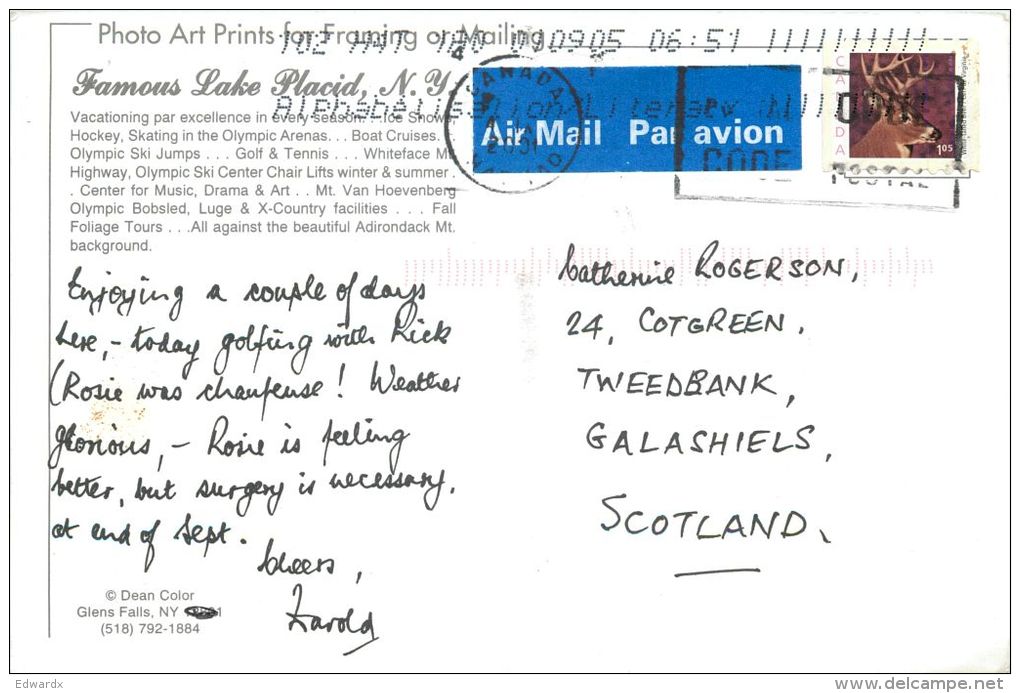 Photo Art Prints for Framing or Mailing
Famous Lake Placid, N.Y.
Vacationing par excellence in every season. . .Ice Shows,
Hockey, Skating in the Olympic Arenas. . . Boat Cruises. . .
Olympic Ski Jumps . . . Golf & Tennis . . . Whiteface Mt.
Highway, Olympic Ski Center Chair Lifts winter & summer .
. Center for Music, Drama & Art . . Mt. Van Hoevenberg
Olympic Bobsled, Luge & X-Country facilities . . . Fall
Foliage Tours . . .All against the beautiful Adirondack Mt.
background.
090905 06:51
CANADA
Air Mail Par avion
CODE
POSTAL
CANADA
105
Enjoying a couple of days
here, - today golfing with Rick
(Rosie was chaufeuse! Weather
glorious, - Rosie is feeling
better, but surgery is necessary,
at end of Sept.
Cheers,
Harold
Catherine ROGERSON,
24, COTGREEN.
TWEEDBANK,
GALASHIELS,
SCOTLAND.
© Dean Color
Glens Falls, NY
(518) 792-1884
Edwardx
www.delcampe.net